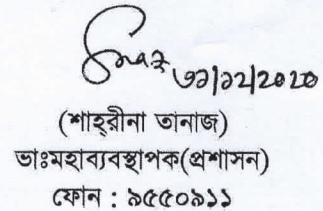 ৩১/১২/২০২০
(শাহ্‌রীনা তানাজ)
ভাঃমহাব্যবস্থাপক(প্রশাসন)
ফোন : ৯৫৫০৯১১